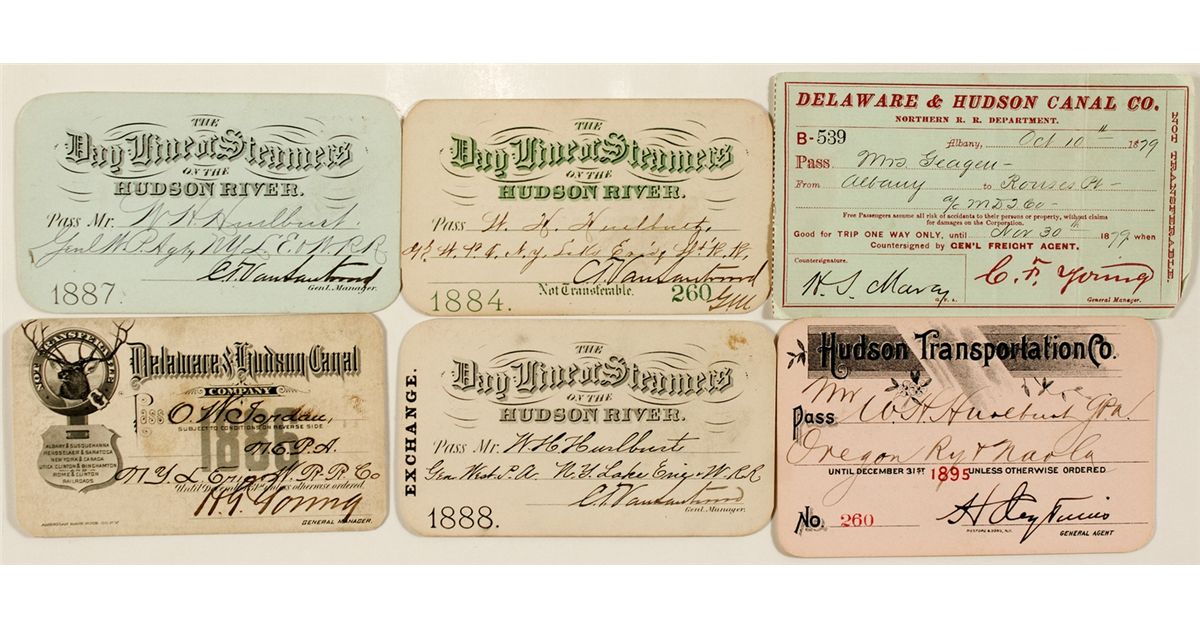 THE
Day Line of Steamers
ON THE
HUDSON RIVER.
Pass Mr. W H Hurlburt
Genl W. P. Agt, N.Y.L.E. & W. R R
C.T. VanSantvoord
Genl. Manager.
1887.
THE
Day Line of Steamers
ON THE
HUDSON RIVER.
Pass W. H. Hurlburt,
N.Y. Lake Erie & W. R.R.
C.T. VanSantvoord
Not Transferable.
1884.
260
GM
DELAWARE & HUDSON CANAL CO.
NORTHERN R. R. DEPARTMENT.
B-539
Albany, Oct 10th 1879
Pass Mrs Geagen
From Albany to Rouses Pt
Free Passengers assume all risk of accidents to their persons or property, without claims
for damages on the Corporation.
Good for TRIP ONE WAY ONLY, until Nov 30th 1879 when
Countersigned by GEN'L FREIGHT AGENT.
Countersignature.
C. F. Young
General Manager.
NOT TRANSFERABLE.
NOT TRANSFERABLE
Delaware & Hudson Canal
COMPANY
Pass
O. W. Jordan,
SUBJECT TO CONDITIONS ON REVERSE SIDE
1886
N.E.P.A.
N.Y.L. Erie & W. R R Co
Until December 31st unless otherwise ordered.
H. G. Young
GENERAL MANAGER.
ALBANY & SUSQUEHANNA
RENSSELAER & SARATOGA
NEW YORK & CANADA
UTICA CLINTON & BINGHAMTON
AND
ROME & CLINTON
RAILROADS
AMERICAN BANK NOTE CO. N.Y.
EXCHANGE.
THE
Day Line of Steamers
ON THE
HUDSON RIVER.
Pass Mr. W H Hurlburt
Gen West. P.A. N.Y. Lake Erie & W. R R
C.T. VanSantvoord
Genl. Manager.
1888.
Hudson Transportation Co.
Mr
Pass W. H. Hurlburt GPA
Oregon Ry &
UNTIL DECEMBER 31ST 1895 UNLESS OTHERWISE ORDERED
No. 260
GENERAL AGENT